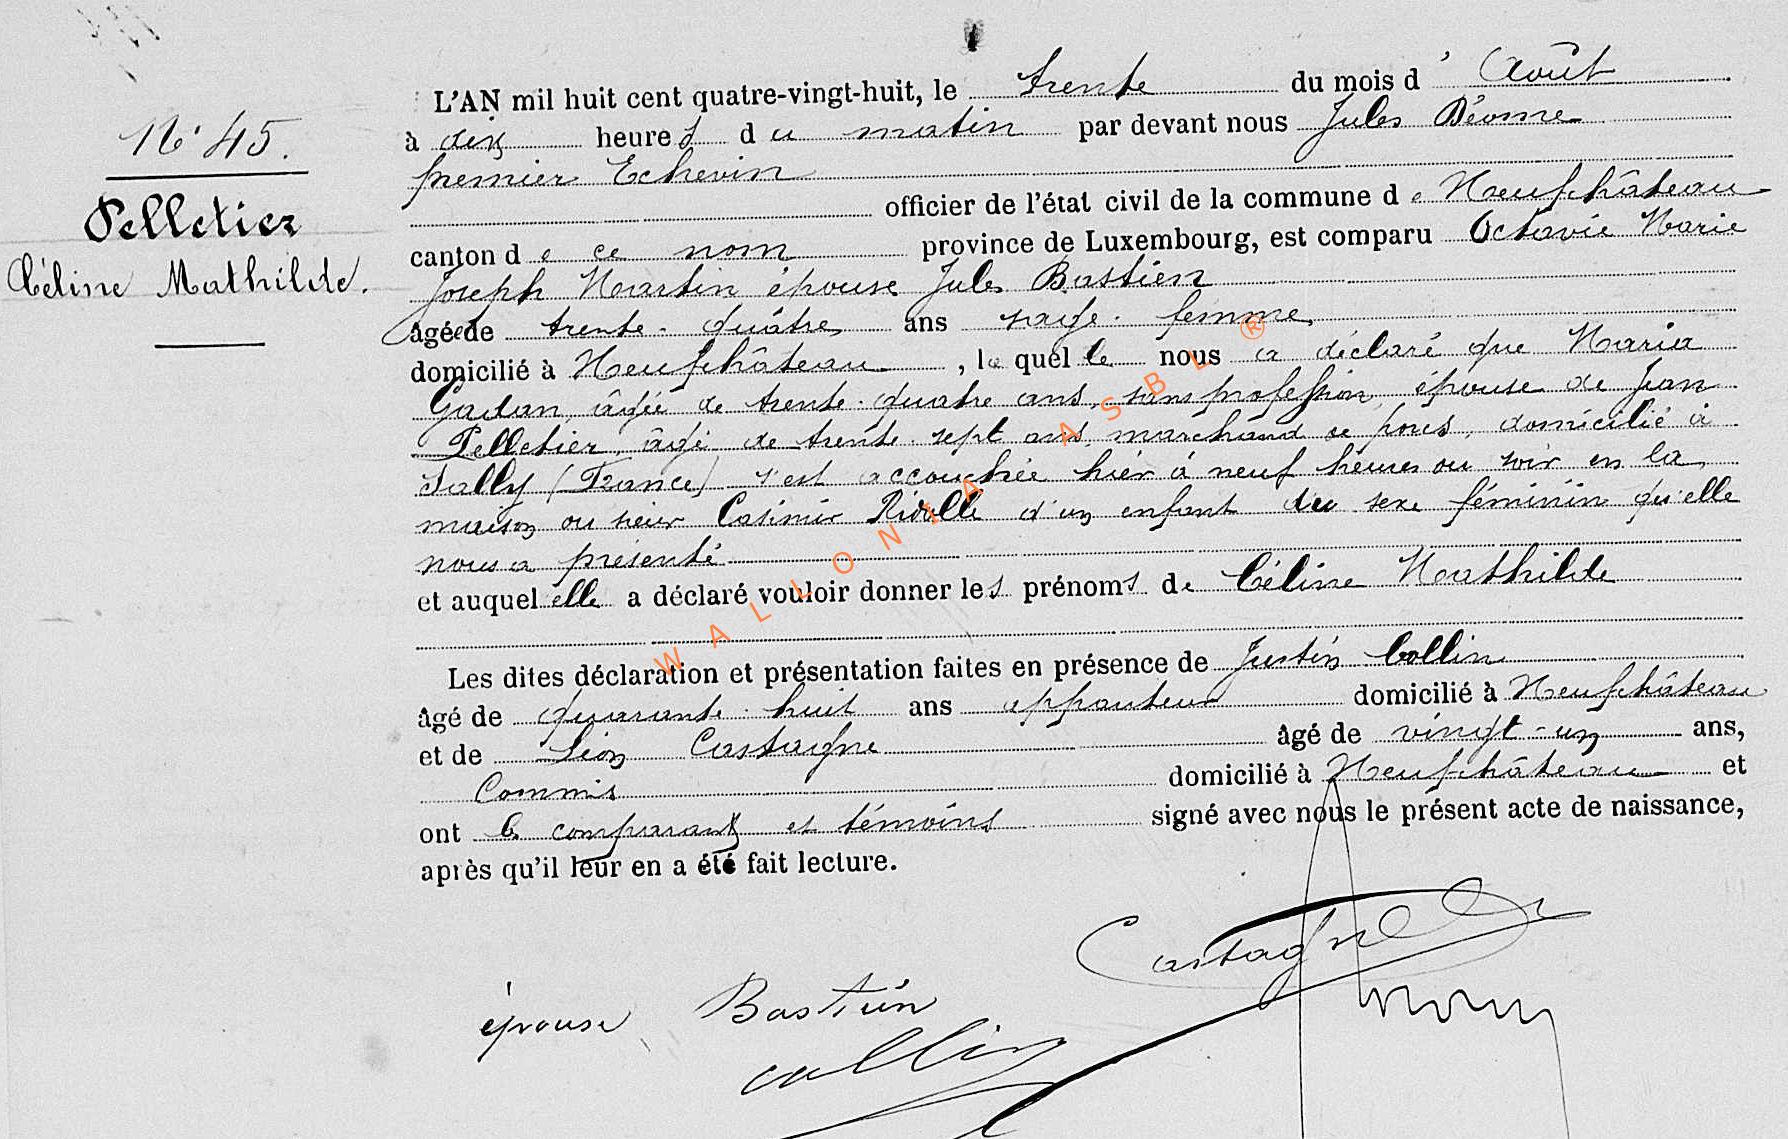 N° 45.
Pelletier
Céline Mathilde.
L'AN mil huit cent quatre-vingt-huit, le trente du mois d' Août
à dix heures du matin par devant nous Jules
premier Echevin
officier de l'état civil de la commune de Neufchâteau
canton de ce nom province de Luxembourg, est comparu Octavie Marie
Joseph Martin épouse Jules Bastien
âgée de trente-quatre ans sage-femme
domicilié à Neufchâteau, laquelle nous a déclaré que Maria
âgée de trente-quatre ans, sans profession, épouse de Jean
Pelletier, âgé de trente-sept ans, marchand de porcs, domicilié à
(France) s'est accouchée hier à neuf heures du soir en la
maison du sieur Casimir d'un enfant du sexe féminin qu'elle
nous a présenté
et auquel elle a déclaré vouloir donner les prénoms de Céline Mathilde
Les dites déclaration et présentation faites en présence de Justin Collin
âgé de quarante-huit ans appariteur domicilié à Neufchâteau
et de Léon Castagne âgé de vingt-un ans,
Commis domicilié à Neufchâteau et
ont les comparants et témoins signé avec nous le présent acte de naissance,
après qu'il leur en a été fait lecture.
Castagne
épouse Bastien
Collin
WALLONIA ASBL ®